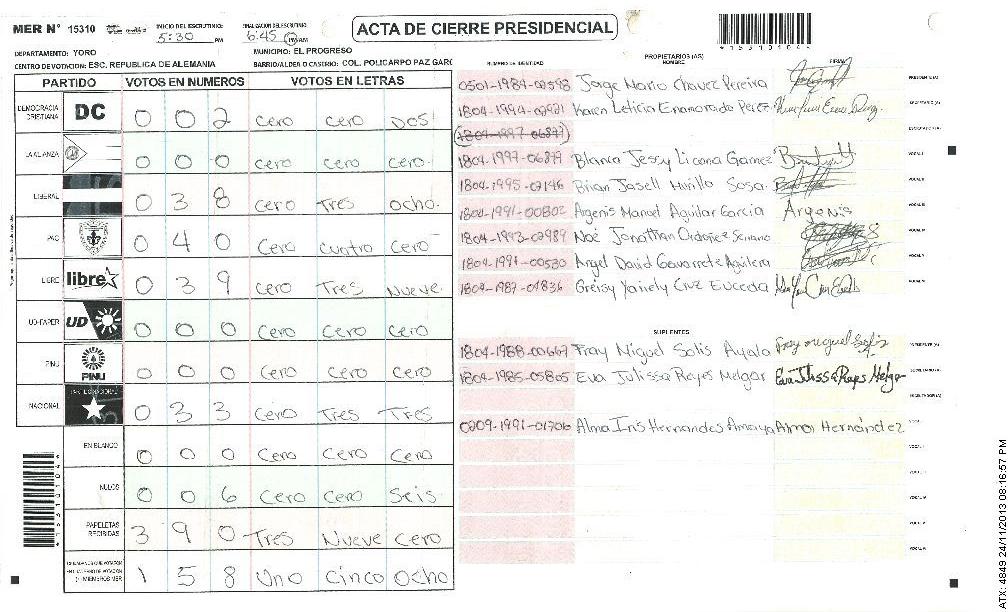 MER N° 15310 INICIO DEL ESCRUTINIO: 5:30 PM FINALIZACION DEL ESCRUTINIO: 6:45 PM AM
ACTA DE CIERRE PRESIDENCIAL
DEPARTAMENTO: YORO MUNICIPIO: EL PROGRESO
CENTRO DE VOTACION: ESC. REPUBLICA DE ALEMANIA BARRIO/ALDEA O CASERIO: COL. POLICARPO PAZ GARC
PARTIDO VOTOS EN NUMEROS VOTOS EN LETRAS
DEMOCRACIA CRISTIANA DC 0 0 2 cero cero Dos
LA ALIANZA 0 0 0 cero cero cero
LIBERAL 0 3 8 cero Tres ocho
PAC 0 4 0 Cero Cuatro Cero
LIBRE libre 0 3 9 Cero Tres Nueve
UD-FAPER UD 0 0 0 Cero Cero Cero
PINU PINU 0 0 0 Cero Cero Cero
NACIONAL 0 3 3 Cero Tres Tres
EN BLANCO 0 0 0 Cero Cero Cero
NULOS 0 0 6 Cero Cero Seis
PAPELETAS RECIBIDAS 3 9 0 Tres Nueve Cero
1 5 8 Uno Cinco Ocho
NUMERO DE IDENTIDAD PROPIETARIOS (AS) NOMBRE FIRMA
0501-1984-02598 Jorge Mario Chavez Pereira PRESIDENTE (A)
1804-1994-02921 Karen Leticia Enamorado Perez SECRETARIO (A)
1804-1997-06879
1804-1997-06879 Blanca Jessy Licona Gamez
1804-1995-02146 Brian Jasell Murillo Sosa
1804-1991-00802 Argenis Manuel Aguilar Garcia Argenis
1804-1993-02989 Noé Jonathan Ordoñez Serrano
1804-1991-00530 Angel David Gavarrete Aguilera
1804-1987-04836 Greisy Yairely Cruz Euceda
SUPLENTES
1804-1988-00667 Fray Miguel Solis Ayala Fray miguel Solis A
1804-1985-05805 Eva Julissa Reyes Melgar Eva Julissa Reyes Melgar
0209-1991-01706 Alma Iris Hernandes Amaya Alma Hernández
ATX: 4849 24/11/2013 08:16:57 PM